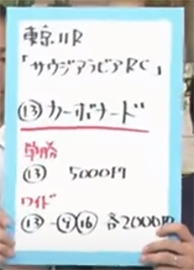 東京11R
「サウジアラビアRC」
⑬カーボナード
単勝
⑬ 5000円
ワイド
⑬-⑨⑯ 各2000円